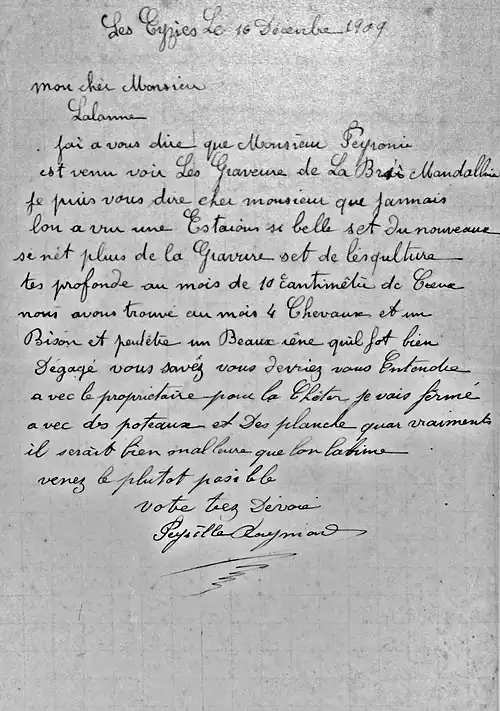 Les Eyzies Le 16 Décenbre 1909
mon cher Monsieur
Lalanne
jai a vous dire que Monsieur Peyronie
est venu voir Les Graveure de La
je puis vous dire cher monsieur que jammais
lon a vru une si belle set du nouveaux
se nét plus de la Gravure set de lésqulture
tes profonde au mois de 10 Çantimêtre de Creux
nous avous trouvé au mois 4 Chevaux et un
Bison et peulêtre un Beaux rêne quil fot bien
Dégagé vous savéz vous devriez vous Entendre
avec le proprietaire pour la Chéter je vais férmé
avec des poteaux et Des planche quar vraiments
il serait bien malleure que lon labime
venez le plutot posible
votre trez Dévoié
Peyrille Raymond